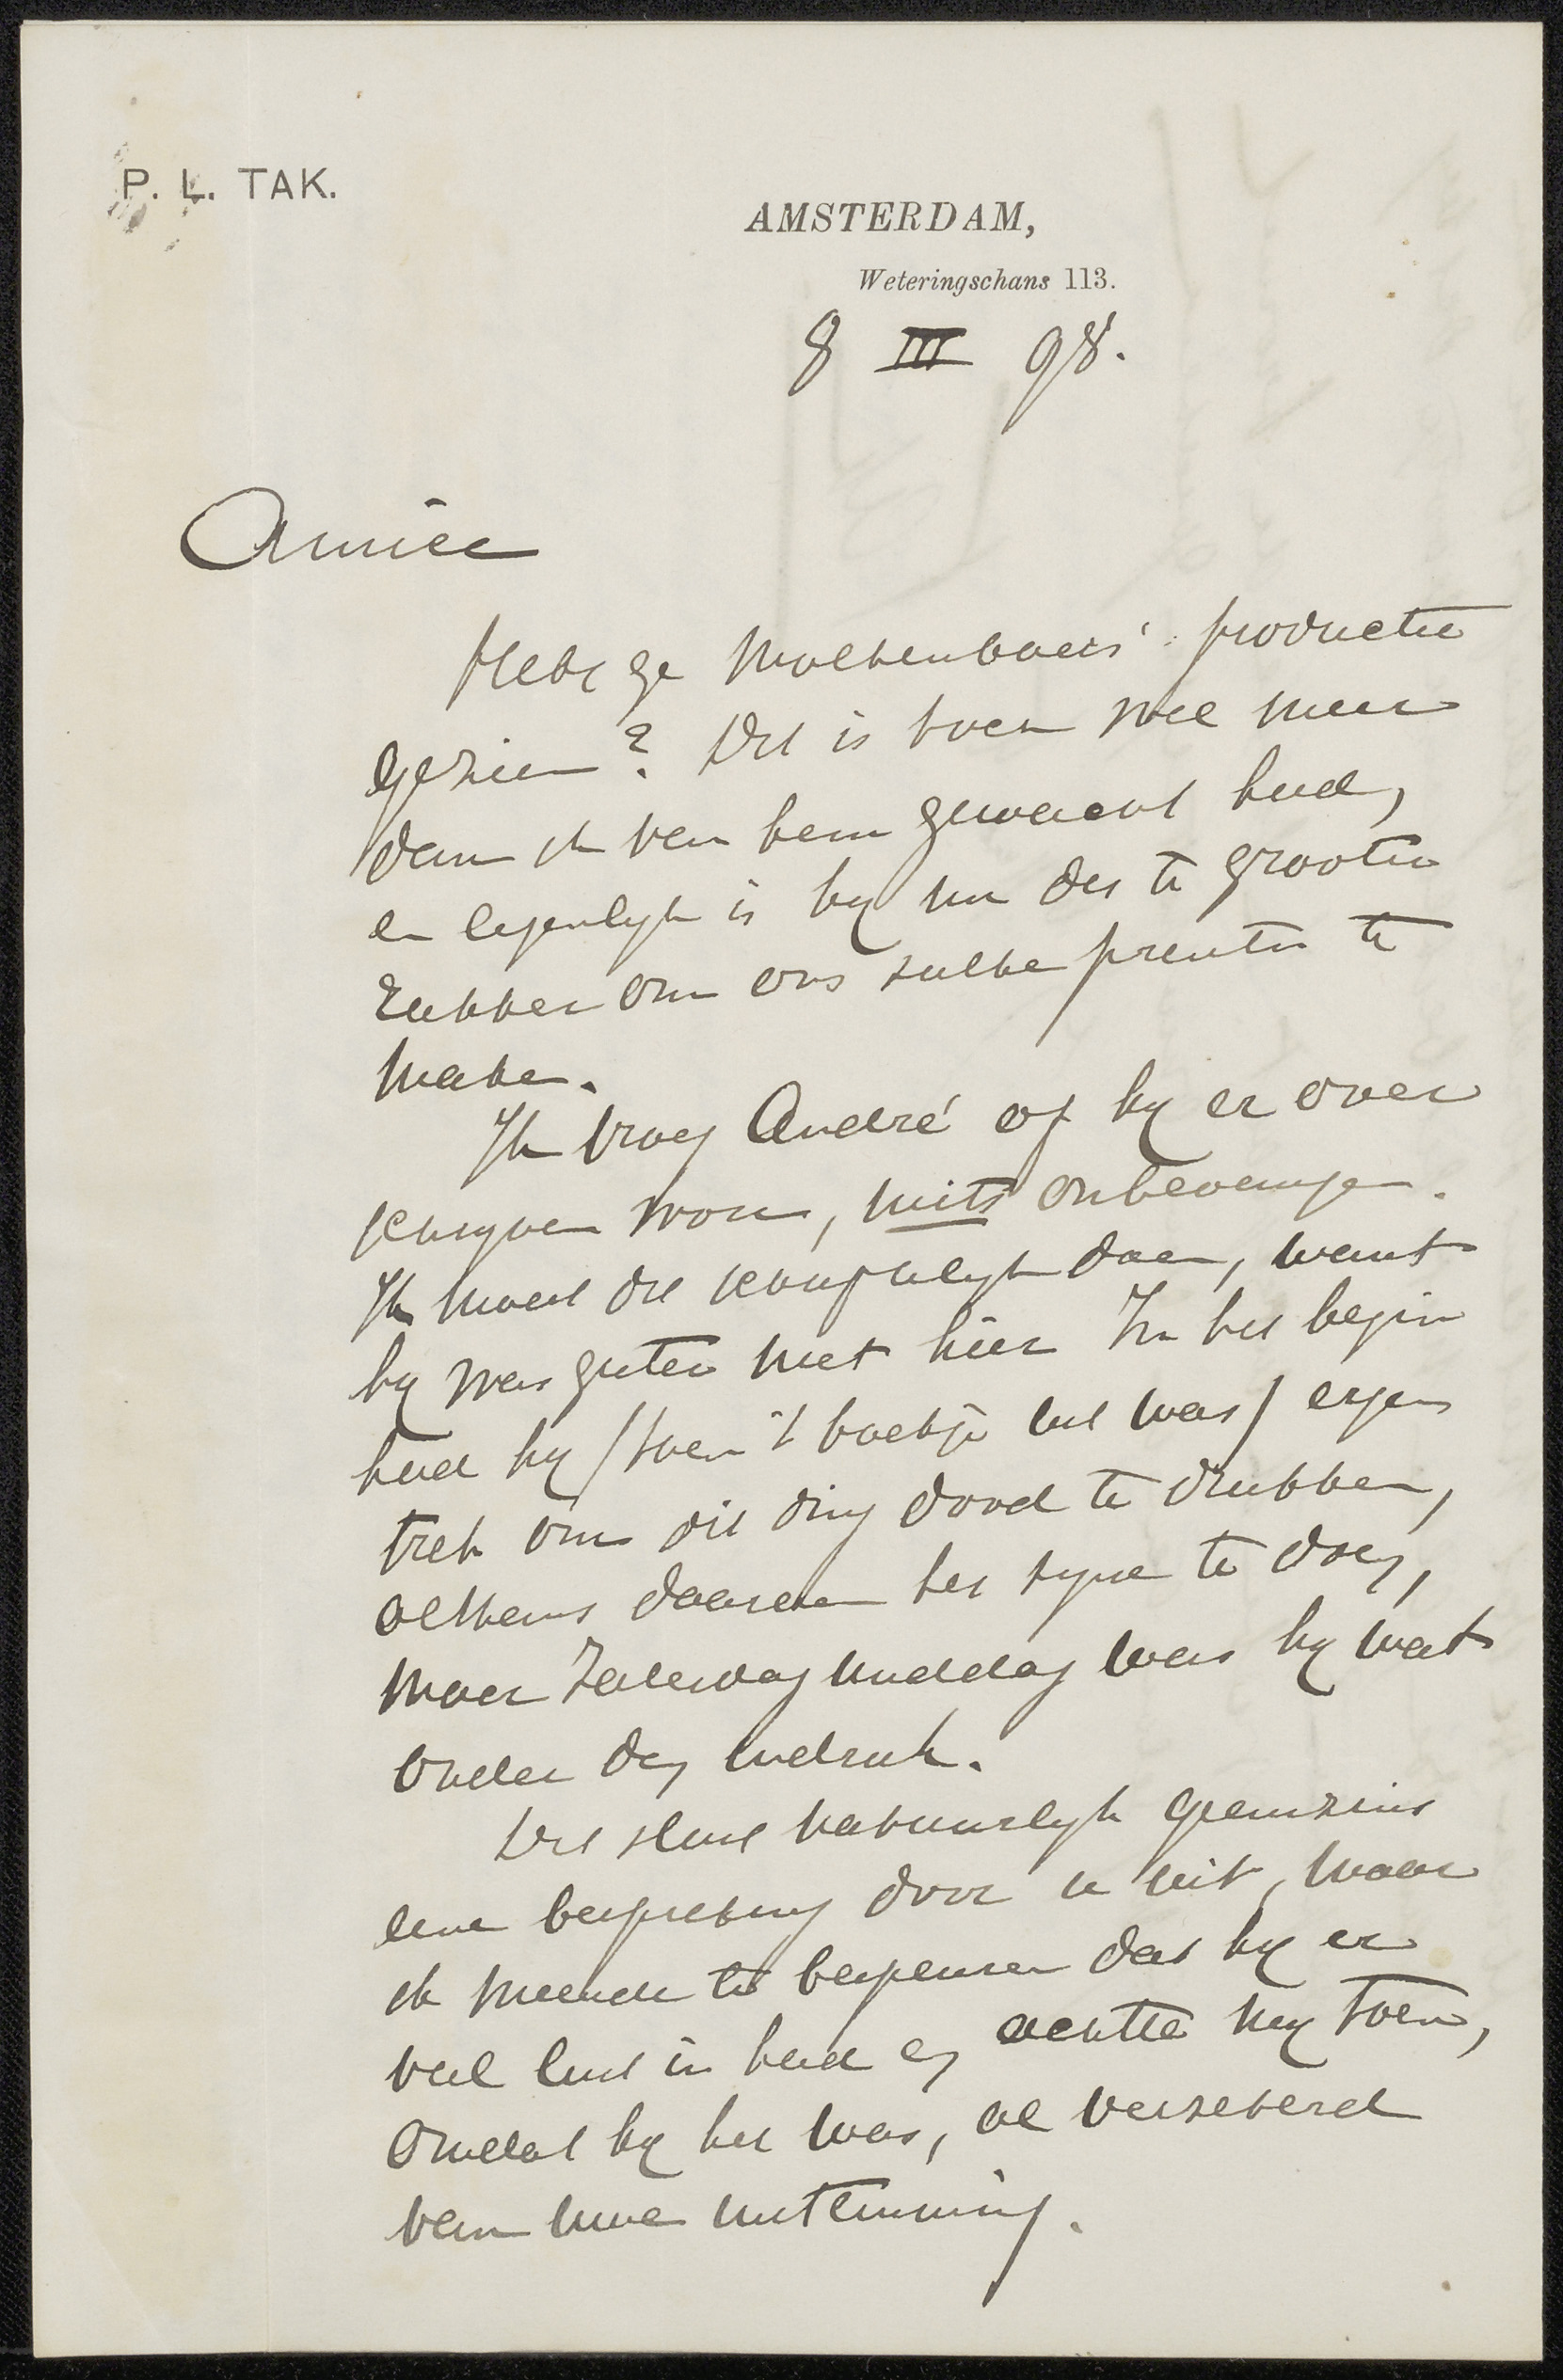 P. L. TAK.
AMSTERDAM,
Weteringschans 113.
8 III 98.
Amice
Hebt ge Molkenboers' productie
gezien? Dit is toch wel meer
dan ik van hem gewacht had,
en eigenlyk is hy nu des te grooter
om ons zulke prenten te
maken.
Ik vroeg André of hy er over
schryven wou, mits onbevangen.
Ik moest dit schriftelyk doen, want
hy was gister niet hier. In het begin
had hy (toen 't boekje uit was) ergens
trek om dit ding dood te drukken,
althans daaraan het zyne te doen,
maar Zaterdagmiddag was hy wat
onder den indruk.
Dit sluit natuurlyk geenszins
eene bespreking door u uit, maar
ik meende te bespeuren dat hy er
veel lust in had en achtte my toen,
omdat hy het was, al verzekerd
van uwe instemming.